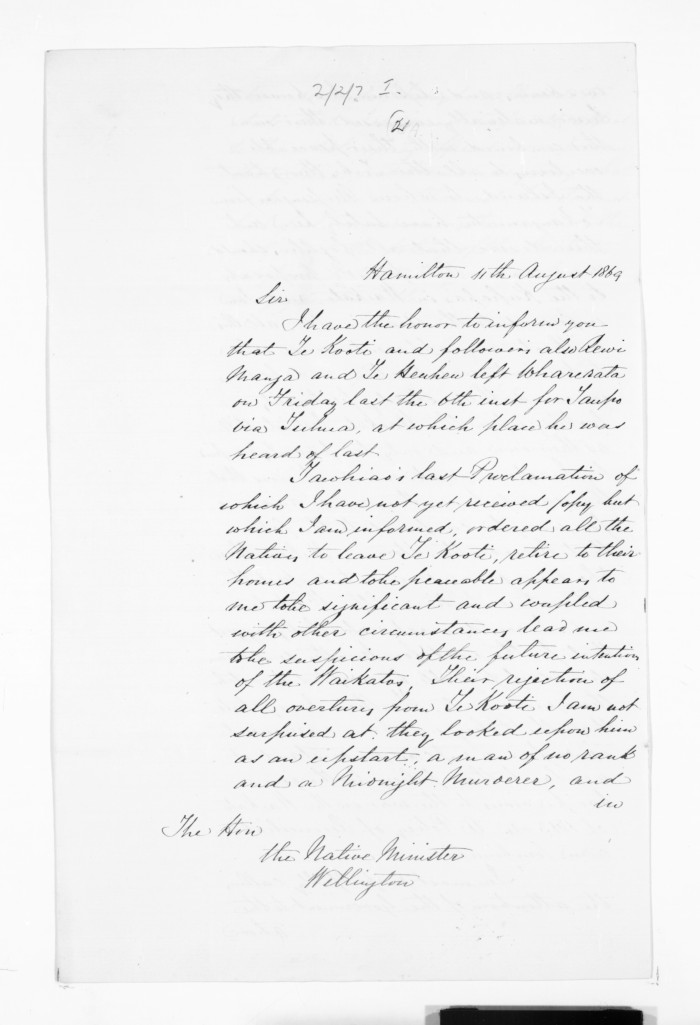 2/2/7 I.
(2)
Hamilton 11th August 1869
Sir
I have the honor to inform you
that Te Kooti and followers also Rewi
Manga and Te Heuheu left Wharerata
on Friday last the 6th inst for Taupo
via Tuhua, at which place he was
heard of last
Tawhiao's last Proclamation of
which I have not yet received Copy but
which I am informed, ordered all the
Natives to leave Te Kooti, retire to their
homes and to be peaceable appears to
me to be significant and coupled
with other circumstances lead me
to be suspicious of the future intention
of the Waikatos. Their rejection of
all overtures from Te Kooti I am not
surprised at. they looked upon him
as an upstart, a man of no rank
and a Midnight Murderer, and
in
The Hon
the Native Minister
Wellington